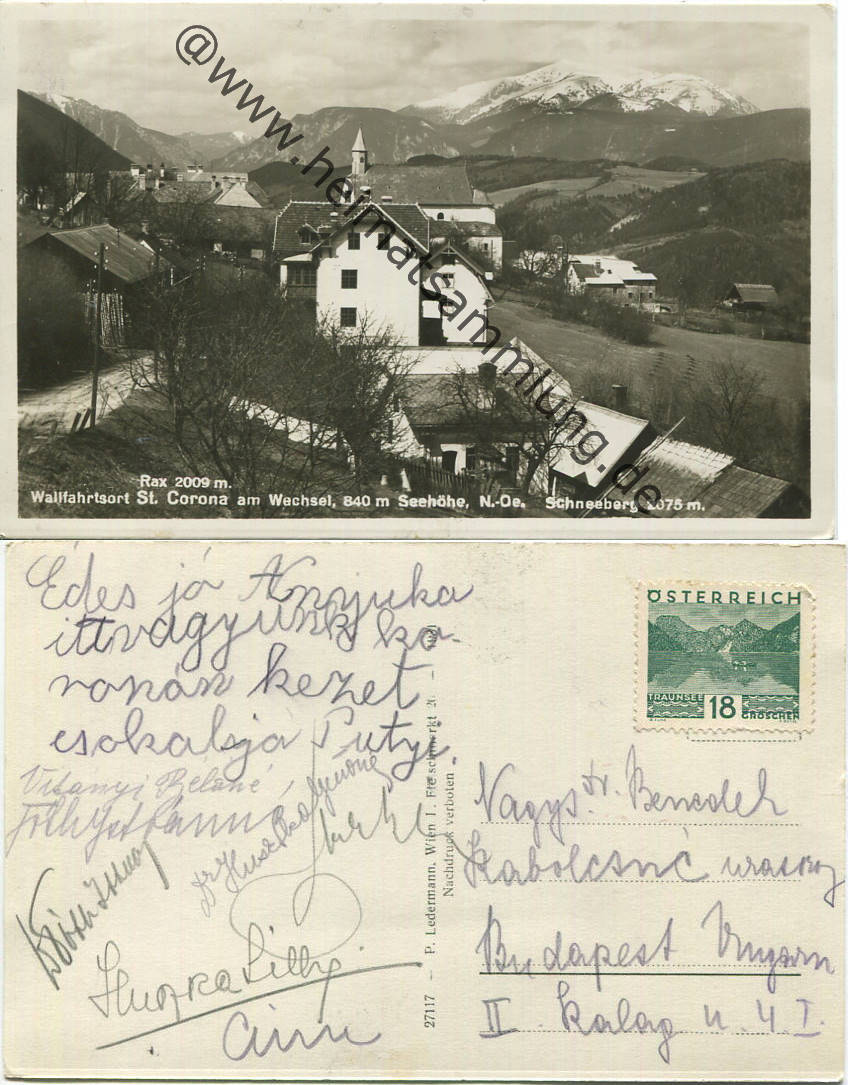 @www.heimatsammlung.de
Rax 2009 m.
Wallfahrtsort St. Corona am Wechsel, 840 m Seehöhe, N.-Oe. Schneeberg 2075 m.
Édes jó Anyuka
ittvagyunk ko-
ronán kezet
csokolja Putyi.
Vitányi Béláné
Huszka Lilly
Cini
27117 – P. Ledermann, Wien I, Fleischmarkt 20
Nachdruck verboten
ÖSTERREICH
TRAUNSEE 18 GROSCHEN
Nagys. dr. Benedek
Szabolcsné
Budapest Ungarn
II Kalag u. 4 I.